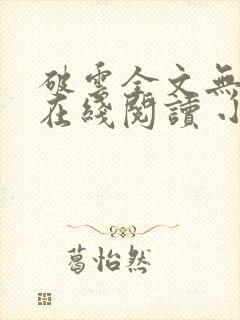 破雲全文無
在綫閱讀 小
葛怡然